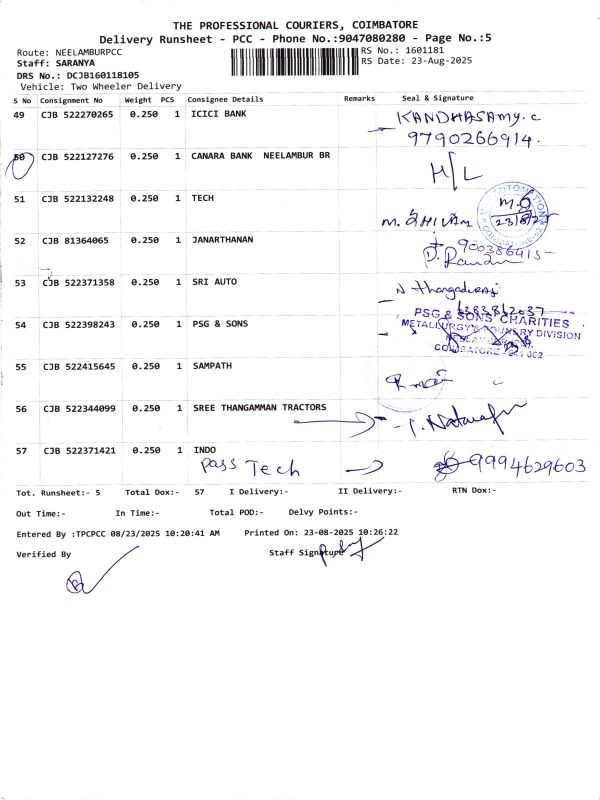 THE PROFESSIONAL COURIERS, COIMBATORE
Delivery Runsheet - PCC - Phone No.:9047080280 - Page No.:5
Route: NEELAMBURPCC RS No.: 1601181
Staff: SARANYA RS Date: 23-Aug-2025
DRS No.: DCJB160118105
Vehicle: Two Wheeler Delivery
S No Consignment No Weight PCS Consignee Details Remarks Seal & Signature
49 CJB 522270265 0.250 1 ICICI BANK KANDHASAMY.C
9790266914.
50 CJB 522127276 0.250 1 CANARA BANK NEELAMBUR BR H/L
51 CJB 522132248 0.250 1 TECH
23/8/25
52 CJB 81364065 0.250 1 JANARTHANAN
53 CJB 522371358 0.250 1 SRI AUTO N Thangaduraj
54 CJB 522398243 0.250 1 PSG & SONS PSG & SONS CHARITIES
METALLURGY & FOUNDRY DIVISION
55 CJB 522415645 0.250 1 SAMPATH
56 CJB 522344099 0.250 1 SREE THANGAMMAN TRACTORS
57 CJB 522371421 0.250 1 INDO
Pass Tech 9994629603
Tot. Runsheet:- 5 Total Dox:- 57 I Delivery:- II Delivery:- RTN Dox:-
Out Time:- In Time:- Total POD:- Delvy Points:-
Entered By :TPCPCC 08/23/2025 10:20:41 AM Printed On: 23-08-2025 10:26:22
Verified By Staff Signature